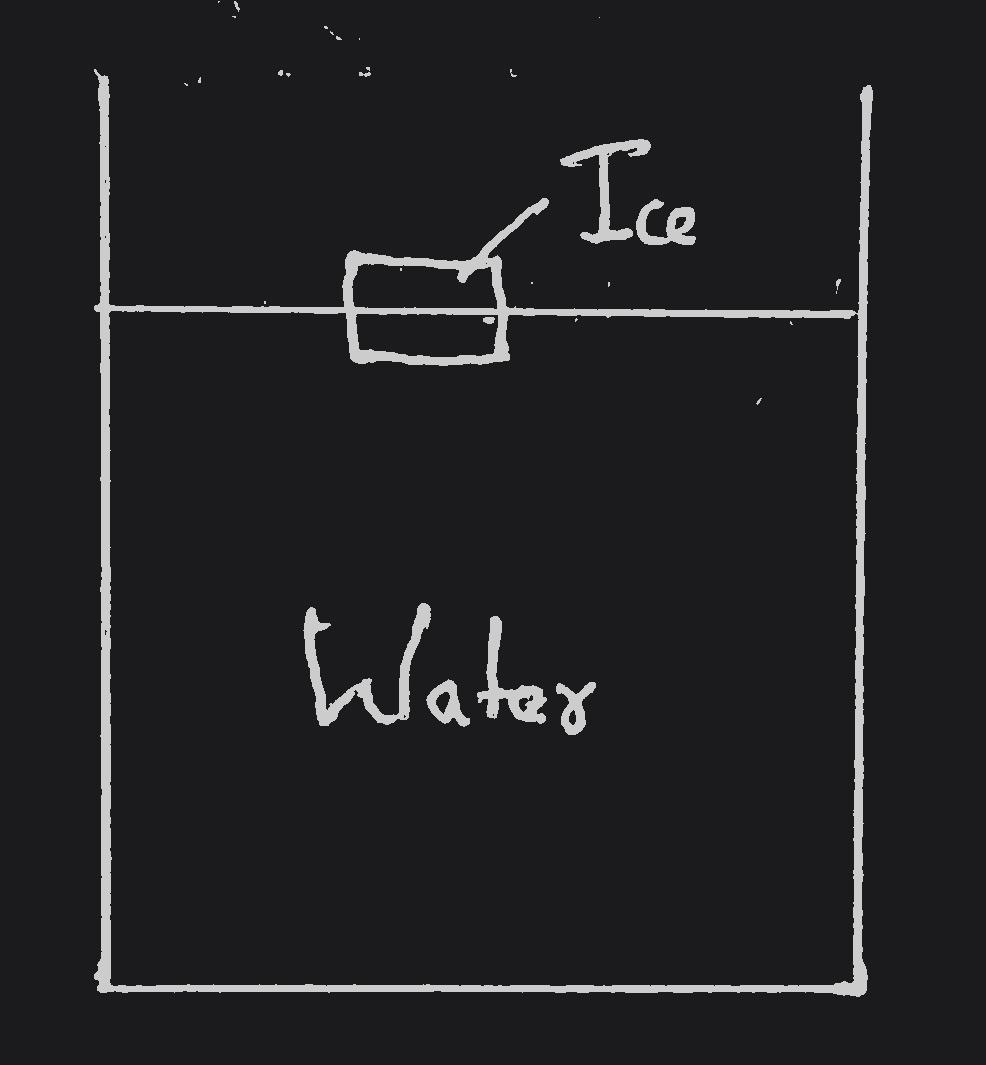 Ice
Water